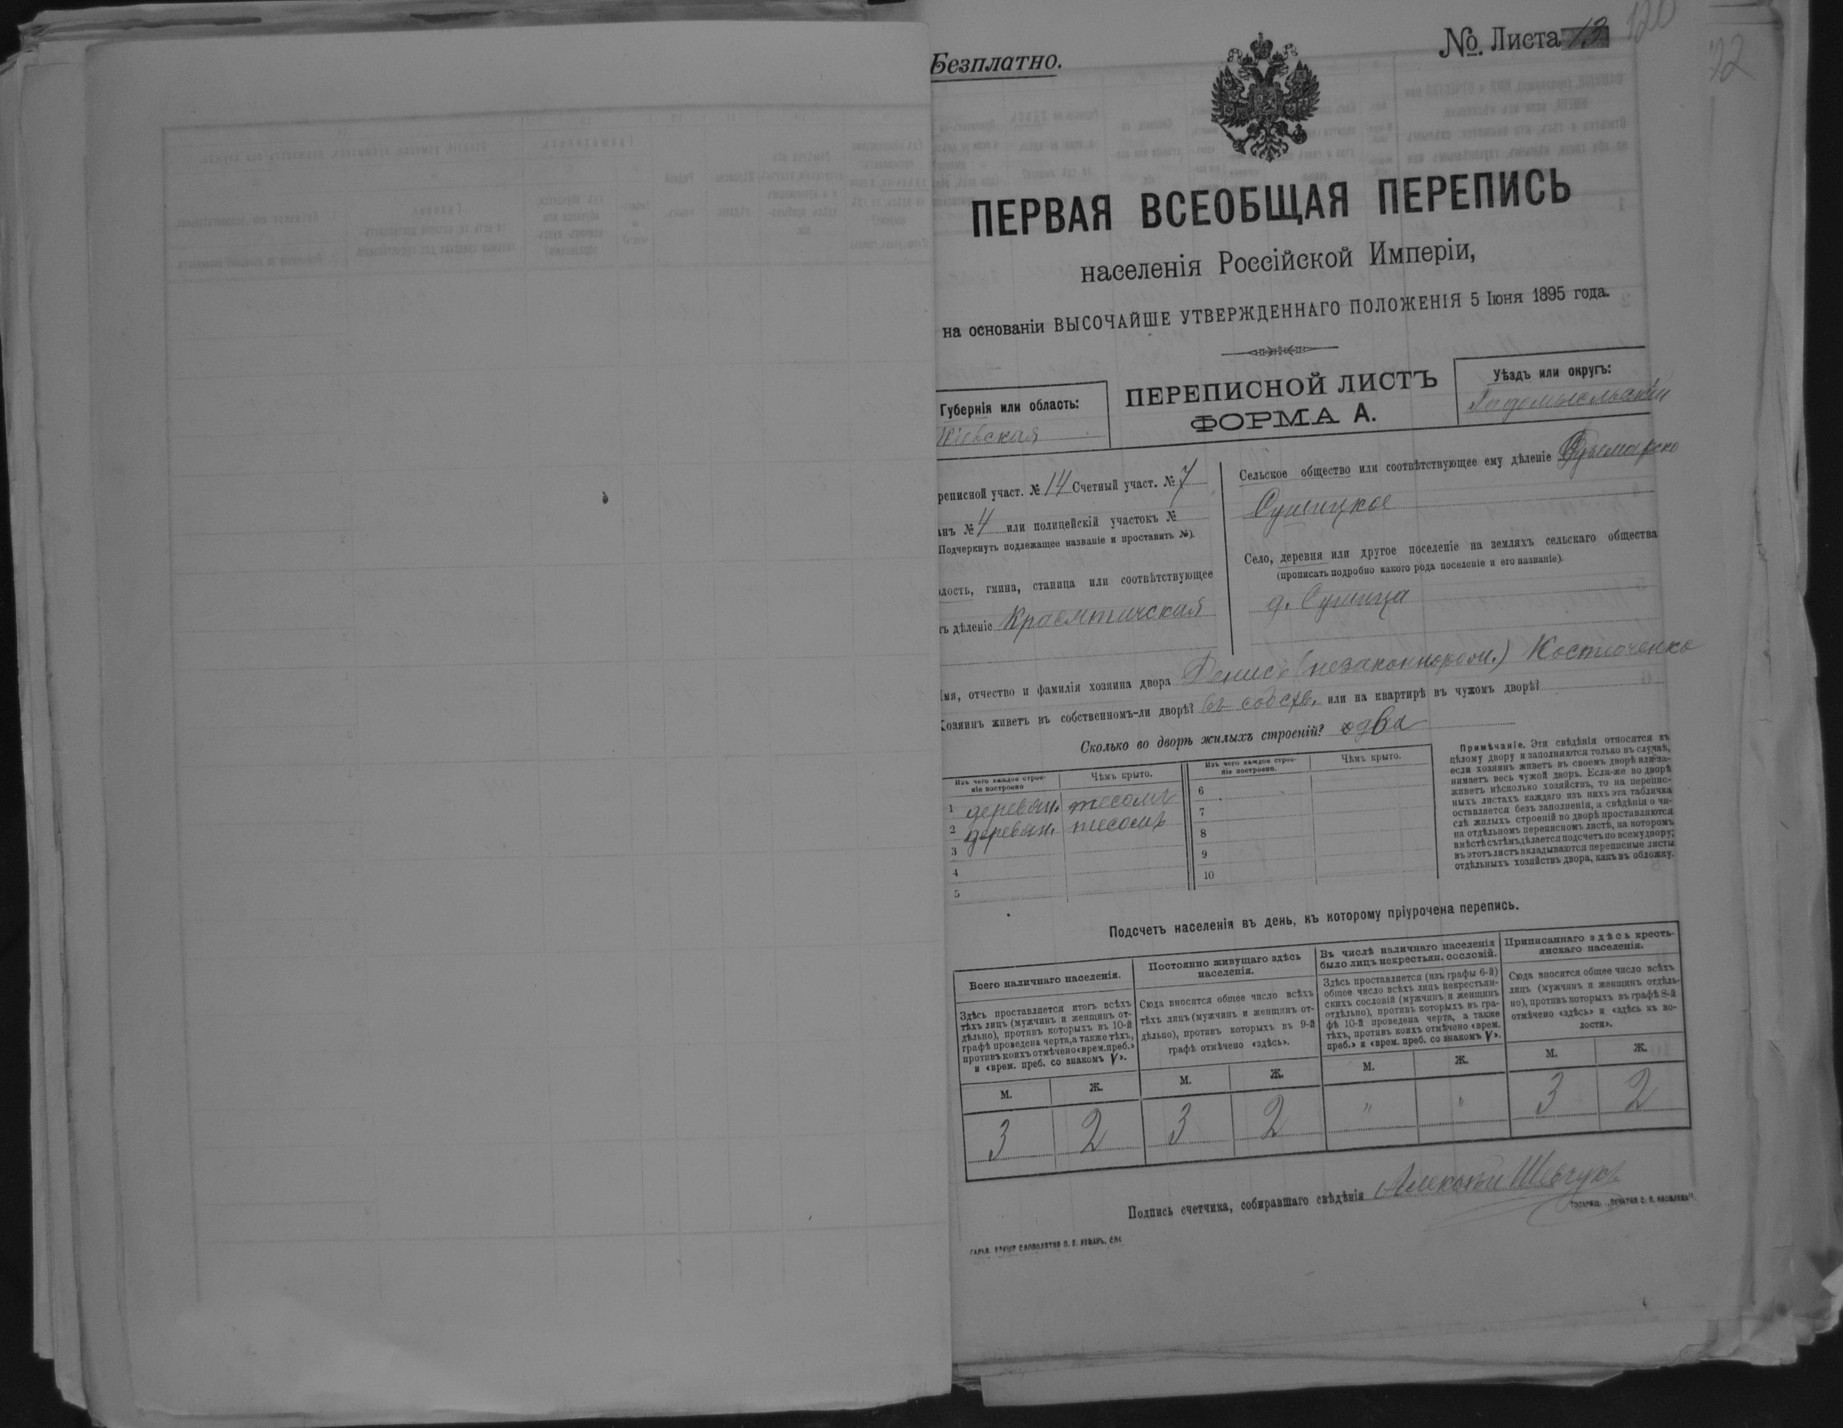 Безплатно.
№ Листа 13
120
ПЕРВАЯ ВСЕОБЩАЯ ПЕРЕПИСЬ
населенія Россійской Имперіи,
на основаніи ВЫСОЧАЙШЕ УТВЕРЖДЕННАГО ПОЛОЖЕНІЯ 5 Іюня 1895 года.
Губернія или область:
Кіевская
ПЕРЕПИСНОЙ ЛИСТЪ
ФОРМА А.
Уѣздъ или округъ:
Радомысльскій
реписной участ. № 14 Счетный участ. № 7
анъ № 4 или полицейскій участокъ №
Подчеркнуть подлежащее названіе и проставить №).
лость, гмина, станица или соотвѣтствующее
ъ дѣленіе
Сельское общество или соотвѣтствующее ему дѣленіе
Сушицкое
Село, деревня или другое поселеніе на земляхъ сельскаго общества
(прописать подробно какого рода поселеніе и его названіе).
д. Сушица
мя, отчество и фамилія хозяина двора Денисъ (незаконнорожд.) Костюченко
Хозяинъ живетъ въ собственномъ-ли дворѣ? въ собств. или на квартирѣ въ чужомъ дворѣ?
Сколько во дворѣ жилыхъ строеній? два
Изъ чего каждое строе-
ніе построено
Чѣмъ крыто.
1 деревян. тесомъ
2 деревян. тесомъ
3
4
5
Изъ чего каждое строе-
ніе построено.
Чѣмъ крыто.
6
7
8
9
10
Примѣчаніе. Эти свѣдѣнія относятся къ
цѣлому двору и заполняются только въ случаѣ,
если хозяинъ живетъ въ своемъ дворѣ или за-
нимаетъ весь чужой дворъ. Если-же во дворѣ
живетъ нѣсколько хозяйствъ, то на перепис-
ныхъ листахъ каждаго изъ нихъ эта табличка
оставляется безъ заполненія, а свѣдѣнія о чи-
слѣ жилыхъ строеній во дворѣ проставляются
на отдѣльномъ переписномъ листѣ, на которомъ
вмѣстѣ съ тѣмъ дѣлается подсчетъ по всему двору;
въ этотъ листъ вкладываются переписные листы
отдѣльныхъ хозяйствъ двора, какъ въ обложку.
Подсчетъ населенія въ день, къ которому пріурочена перепись.
Всего наличнаго населенія.
Здѣсь проставляется итогъ всѣхъ
тѣхъ лицъ (мужчинъ и женщинъ от-
дѣльно), противъ которыхъ въ 10-й
графѣ проведена черта, а также тѣхъ,
противъ коихъ отмѣчено «врем. преб.»
и «врем. преб. со знакомъ V».
М. Ж.
3 2
Постоянно живущаго здѣсь
населенія.
Сюда вносится общее число всѣхъ
тѣхъ лицъ (мужчинъ и женщинъ от-
дѣльно), противъ которыхъ въ 9-й
графѣ отмѣчено «здѣсь».
М. Ж.
3 2
Въ числѣ наличнаго населенія
было лицъ некрестьян. сословій.
Здѣсь проставляется (изъ графы 6-й)
общее число всѣхъ лицъ некрестьян-
скихъ сословій (мужчинъ и женщинъ
отдѣльно), противъ которыхъ въ гра-
фѣ 10-й проведена черта, а также
тѣхъ, противъ коихъ отмѣчено «врем.
преб.» и «врем. преб. со знакомъ V».
М. Ж.
" "
Приписаннаго здѣсь кресть-
янскаго населенія.
Сюда вносится общее число всѣхъ
лицъ (мужчинъ и женщинъ отдѣль-
но), противъ которыхъ въ графѣ 8-й
отмѣчено «здѣсь» и «здѣсь въ во-
лости».
М. Ж.
3 2
Подпись счетчика, собиравшаго свѣдѣнія Алексѣй Шевчукъ